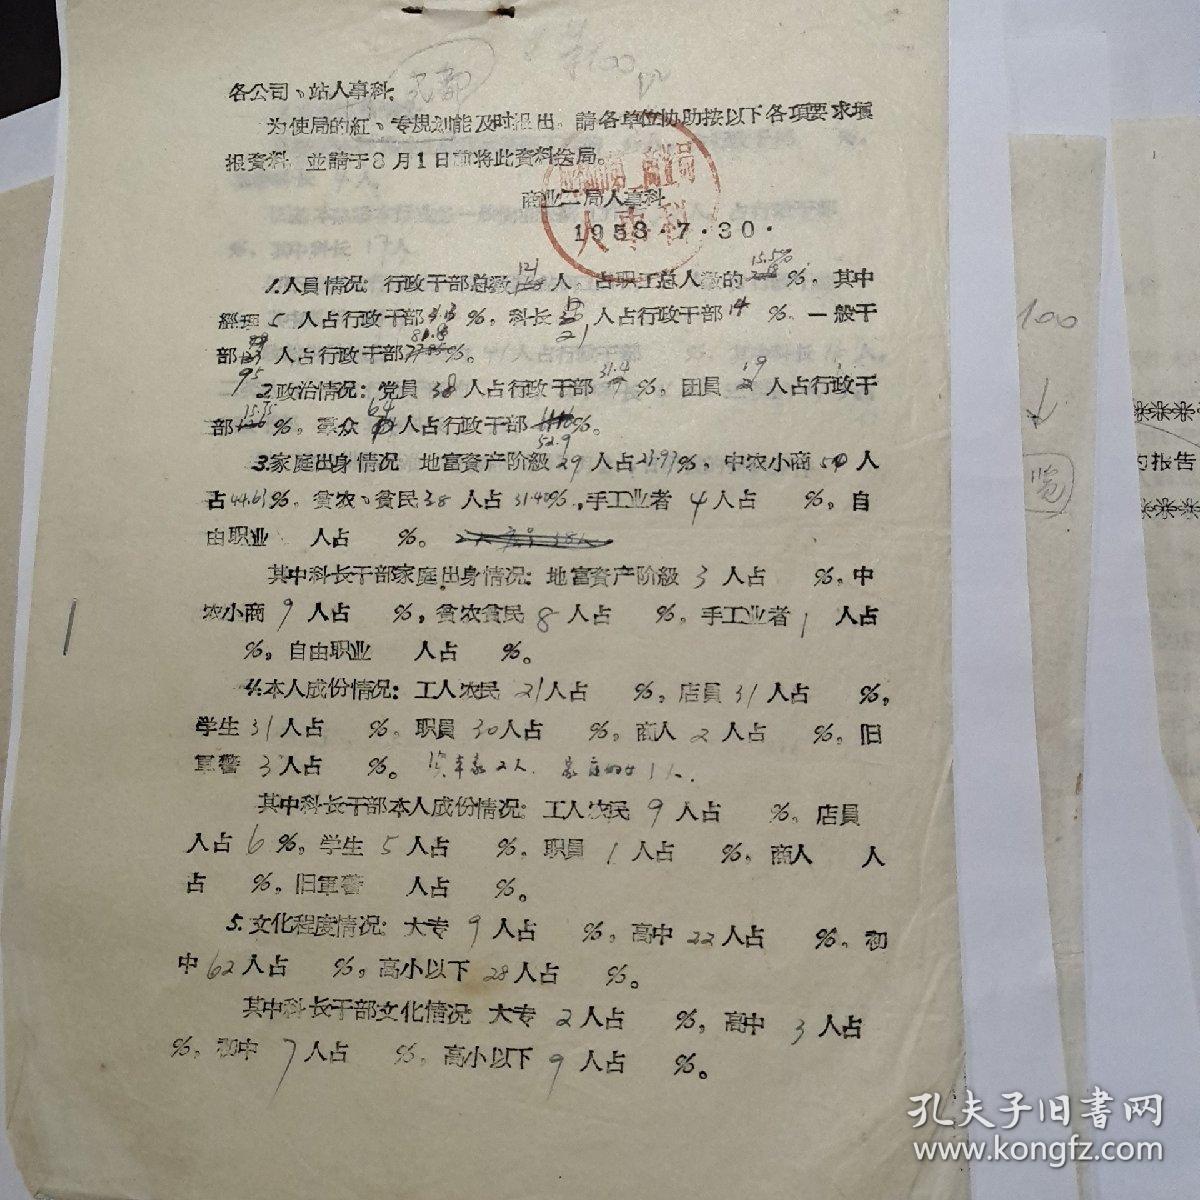 各公司、站人事科：
为使局的紅、专規划能及时提出，請各单位协助按以下各項要求填
报資料，並請于8月1日前将此資料送局。
商业二局人事科
1958·7·30·
人事科
1.人員情况：行政干部总数121人，占职工总人数的15.5%，其中
經理5人占行政干部4.13%，科长21人占行政干部14%，一般干
部95人占行政干部81.8%。
2.政治情况：党員38人占行政干部31.4%，团員19人占行政干
部15.75%，羣众64人占行政干部52.9%。
3.家庭出身情况 地富資产阶級29人占23.97%，中农小商54人
占44.63%，贫农、贫民38人占31.40%，手工业者4人占 %，自
由职业 人占 %。
其中科长干部家庭出身情况：地富資产阶級3人占 %，中
农小商9人占 %，贫农贫民8人占 %，手工业者1人占
%，自由职业 人占 %。
4.本人成份情况：工人农民21人占 %，店員31人占 %，
学生31人占 %，职員30人占 %，商人2人占 %，旧
軍警3人占 %。
其中科长干部本人成份情况：工人农民9人占 %，店員
人占6%，学生5人占 %，职員1人占 %，商人 人
占 %，旧軍警 人占 %。
5.文化程度情况：大专9人占 %，高中22人占 %，初
中62人占 %，高小以下28人占 %。
其中科长干部文化情况 大专2人占 %，高中3人占
%，初中7人占 %，高小以下9人占 %。
100
的报告
孔夫子旧书网
www.kongfz.com